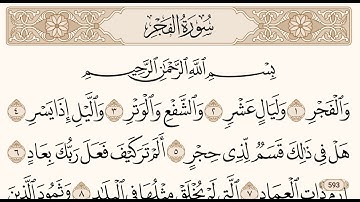 سُورَةُ الفَجْرِ
بِسْمِ اللَّهِ الرَّحْمَٰنِ الرَّحِيمِ
وَالْفَجْرِ ١ وَلَيَالٍ عَشْرٍ ٢ وَالشَّفْعِ وَالْوَتْرِ ٣ وَاللَّيْلِ إِذَا يَسْرِ ٤
هَلْ فِي ذَٰلِكَ قَسَمٌ لِّذِي حِجْرٍ ٥ أَلَمْ تَرَ كَيْفَ فَعَلَ رَبُّكَ بِعَادٍ ٦
إِرَمَ ذَاتِ الْعِمَادِ ٧ الَّتِي لَمْ يُخْلَقْ مِثْلُهَا فِي الْبِلَادِ ٨ وَثَمُودَ الَّذِينَ
593